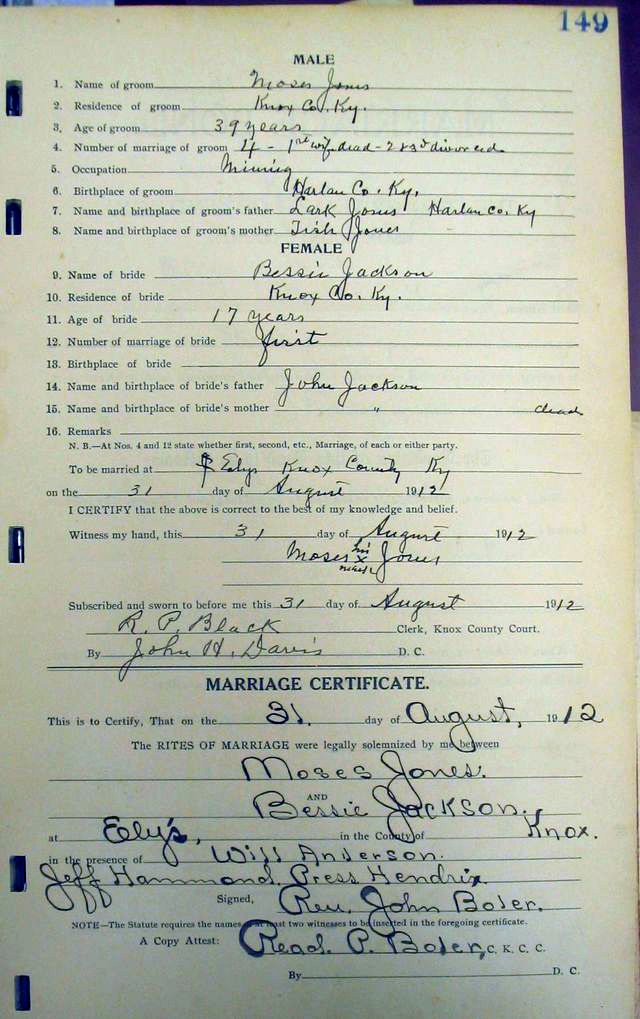 149
MALE
1. Name of groom Moses Jones
2. Residence of groom Knox Co. Ky.
3. Age of groom 39 years
4. Number of marriage of groom 4 - 1st wife dead - 2 & 3d divorced
5. Occupation Mining
6. Birthplace of groom Harlan Co. Ky.
7. Name and birthplace of groom's father Lark Jones Harlan Co. Ky
8. Name and birthplace of groom's mother Tish Jones
FEMALE
9. Name of bride Bessie Jackson
10. Residence of bride Knox Co. Ky.
11. Age of bride 17 years
12. Number of marriage of bride first
13. Birthplace of bride
14. Name and birthplace of bride's father John Jackson
15. Name and birthplace of bride's mother " dead
16. Remarks
N. B.—At Nos. 4 and 12 state whether first, second, etc., Marriage, of each or either party.
To be married at Elys Knox County Ky
on the 31 day of August 1912
I CERTIFY that the above is correct to the best of my knowledge and belief.
Witness my hand, this 31 day of August 1912
Moses his x mark Jones
Subscribed and sworn to before me this 31 day of August 1912
R. P. Black Clerk, Knox County Court.
By John H. Davis D. C.
MARRIAGE CERTIFICATE.
This is to Certify, That on the 31. day of August, 1912
The RITES OF MARRIAGE were legally solemnized by me between
Moses Jones.
AND
Bessie Jackson.
at Ely's, in the County of Knox.
in the presence of Will Anderson.
Jeff Hammond. Press Hendrix
Signed, Rev. John Boler.
NOTE—The Statute requires the names of at least two witnesses to be inserted in the foregoing certificate.
A Copy Attest: Read. P. Boler, C. K. C. C.
By D. C.